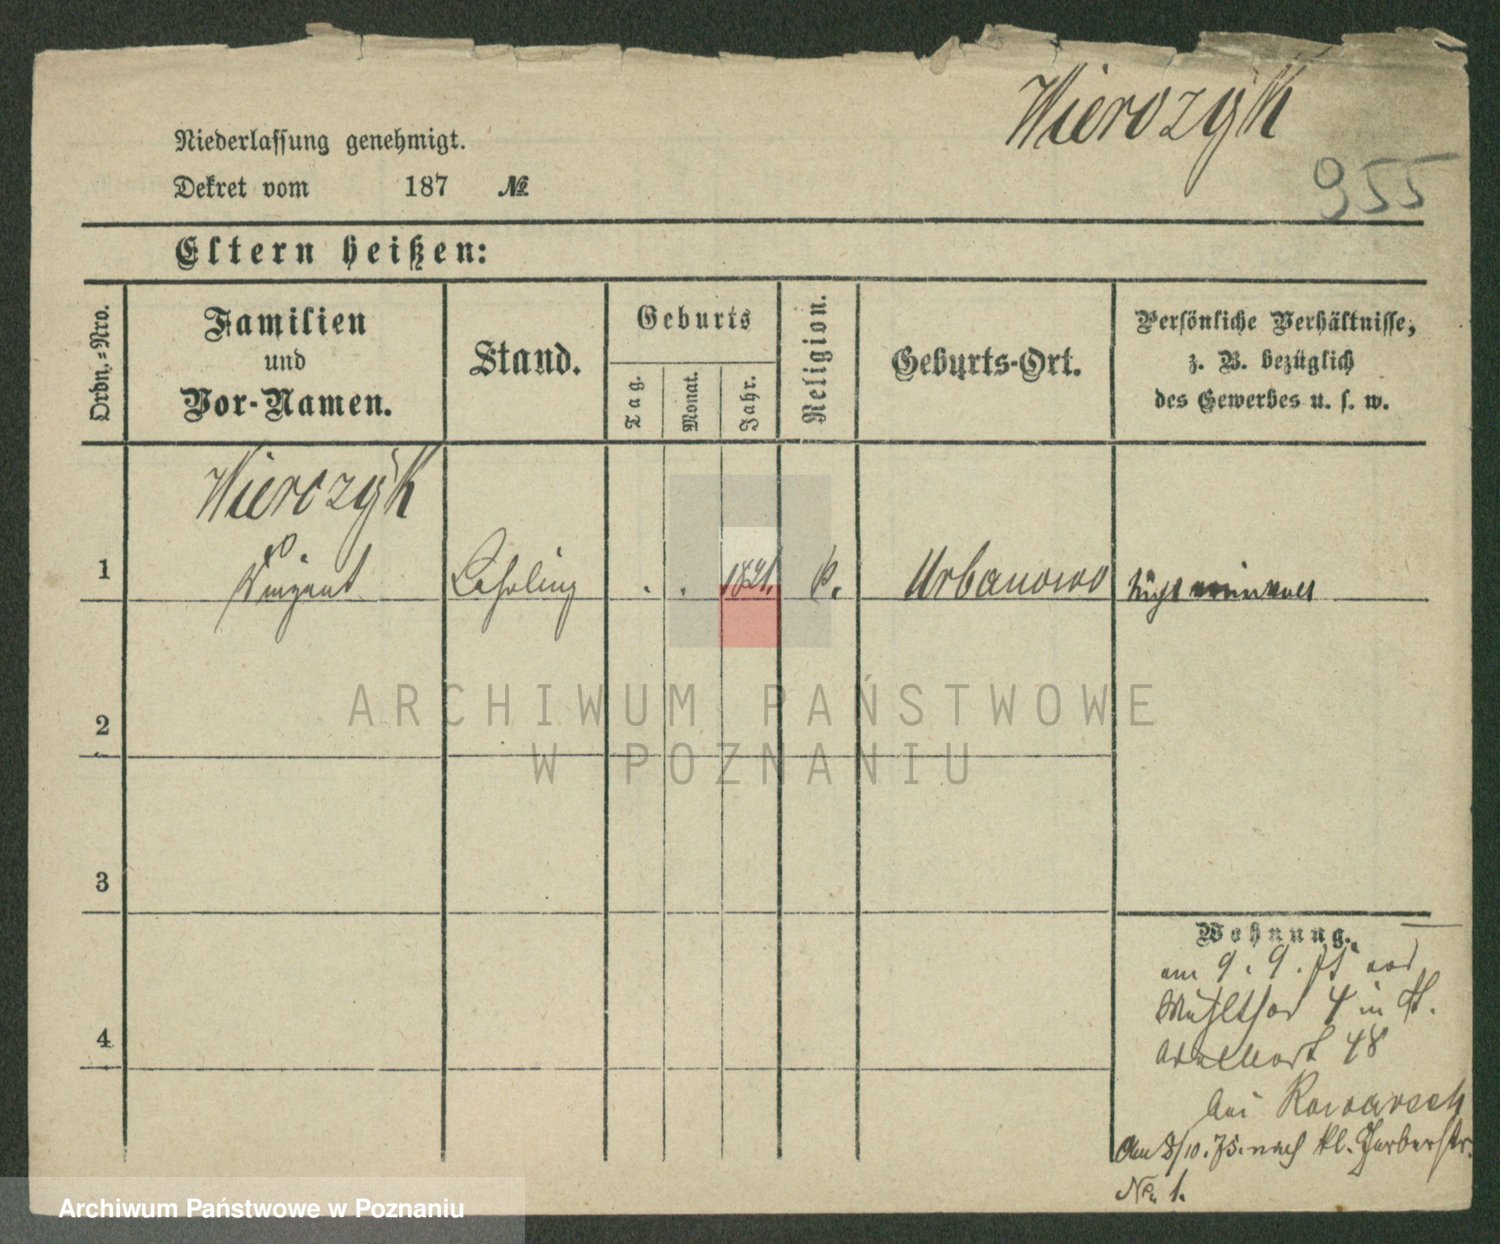 Wierczyk
955
Niederlassung genehmigt.
Dekret vom 187 №
Eltern heißen:
Ordn.-Nro.
Familien
und
Vor-Namen.
Stand.
Geburts
Tag.
Monat.
Jahr.
Religion.
Geburts-Ort.
Persönliche Verhältnisse,
z. B. bezüglich
des Gewerbes u. s. w.
Wierczyk
1 Vinzent Lehrling . . 1821. k. Urbanowo
2
3
4
Wohnung.
am 9. 9. 75 vor
Mühlthor 4 in St.
Adalbert 48
bei
Am 8/10. 75. nach kl. Gerberstr.
No. 1.
ARCHIWUM PAŃSTWOWE
W POZNANIU
Archiwum Państwowe w Poznaniu